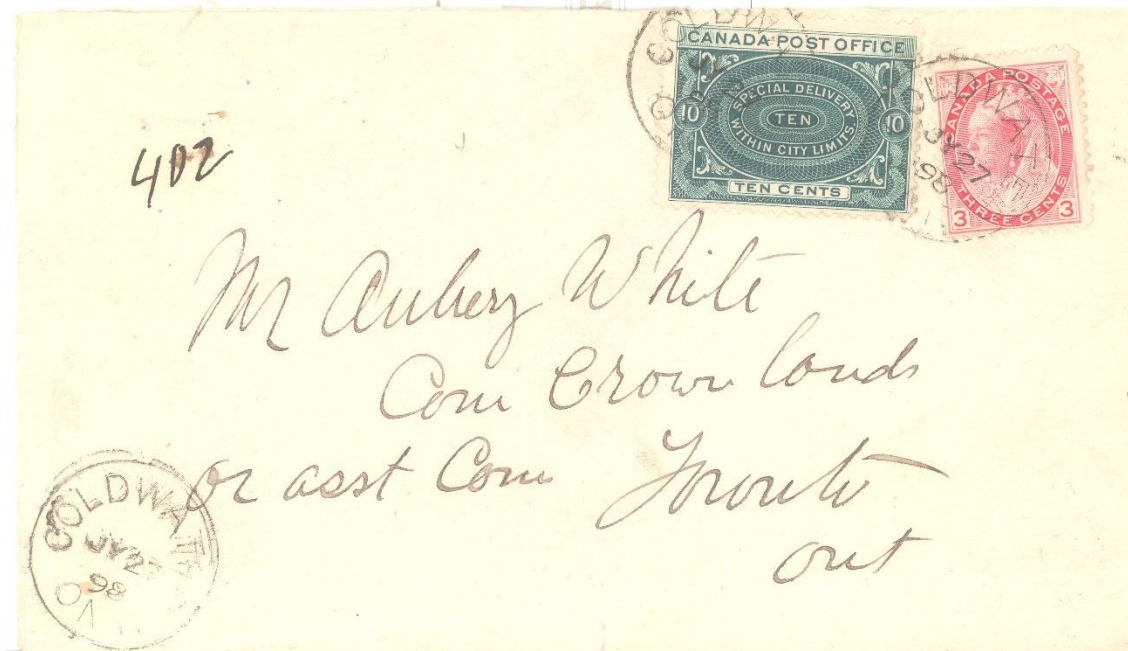 CANADA POST OFFICE
10 SPECIAL DELIVERY 10
TEN
WITHIN CITY LIMITS
TEN CENTS
CANADA POSTAGE
3 THREE CENTS 3
COLDWAT
JY 27
98
402
Mr Aubery White
Com Crown lands
or asst Com Toronto
Ont
COLDWAT
JY 27
98